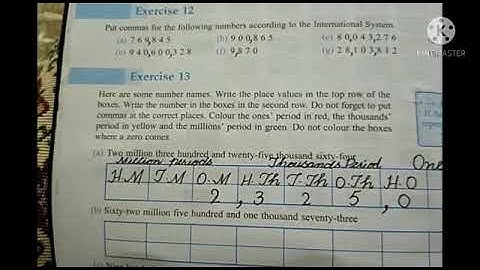 Exercise 12
Put commas for the following numbers according to the International System.
(a) 769,845 (b) 900,865 (c) 80,043,276
(e) 940,600,328 (f) 9,870 (g) 28,103,812
KINEMASTER
Exercise 13
Here are some number names. Write the place values in the top row of the
boxes. Write the number in the boxes in the second row. Do not forget to put
commas at the correct places. Colour the ones' period in red, the thousands'
period in yellow and the millions' period in green. Do not colour the boxes
where a zero comes.
(a) Two million three hundred and twenty-five thousand sixty-four
Million periods Thousands Period One
H.M T.M O.M H.Th T.Th O.Th H.O
2,3 2 5,0
(b) Sixty-two million five hundred and one thousand seventy-three